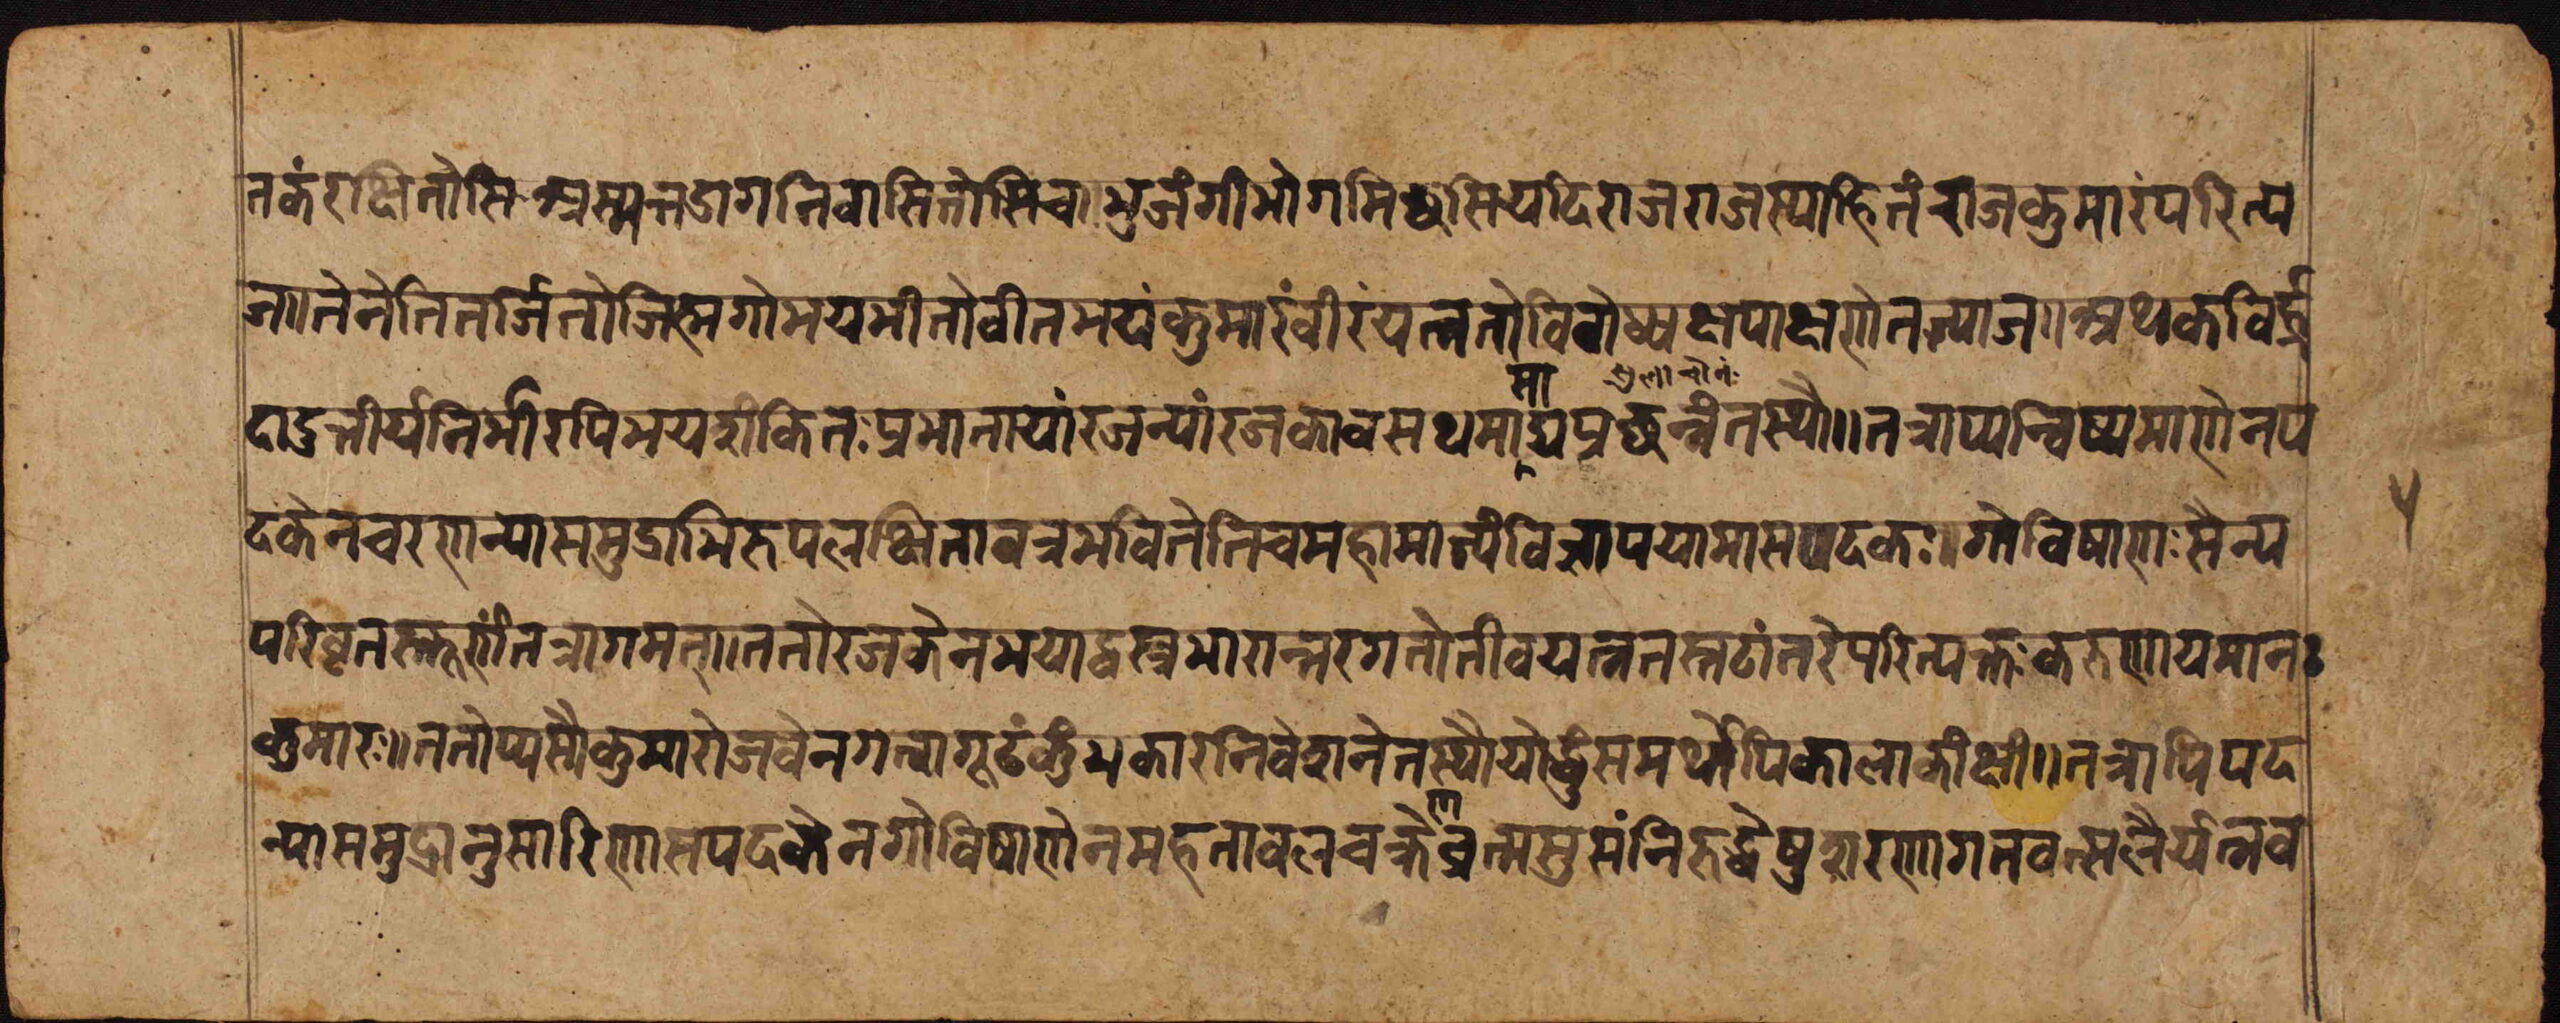 तकं रक्षितोसि अस्मत्तडागनिवासिनोसि च॥ भुजंगीभोगमिच्छसि यदि राजराजस्याहितं राजकुमारं परित्य
ज॥ तेनेति तर्जितो जिह्मगो भयभीतो वीतभयं कुमारं वीरं यत्नतो विबोध्य क्षपाक्षणे तत्याज॥ अथ कविर्ह्र
दादुत्तीर्य निर्भीरपि भयशंकितः प्रभातायां रजन्यां रजकावसथमासाद्य प्रच्छन्नं तस्थौ॥ तत्राप्यन्विष्यमाणे नप
दकेन चरणन्याससमुद्राभिरुपलक्षिता वत्रभवितेति च महामात्यं विज्ञापयामास पदकः॥ गोविषाणः सैन्य
परिवृतस्तूर्णं तत्रागमत्॥ ततो रजकेन भयाद्वस्त्रभारान्तरगतो तीवयत्नतस्तटांतरे परित्यक्तः करुणायमानः
कुमारः॥ ततोप्यसौ कुमारो जवेन गत्वा गूढं कुंभकारनिवेशने तस्थौ योद्धुं समर्थोपि कालाकांक्षी॥ तत्रापि पद
न्याससमुद्रानुसारिणा सपदकेन गोविषाणेन महता वलचक्रेण वर्त्मसु संनिरुद्धेषु शरणागतवत्सलैर्यत्नव